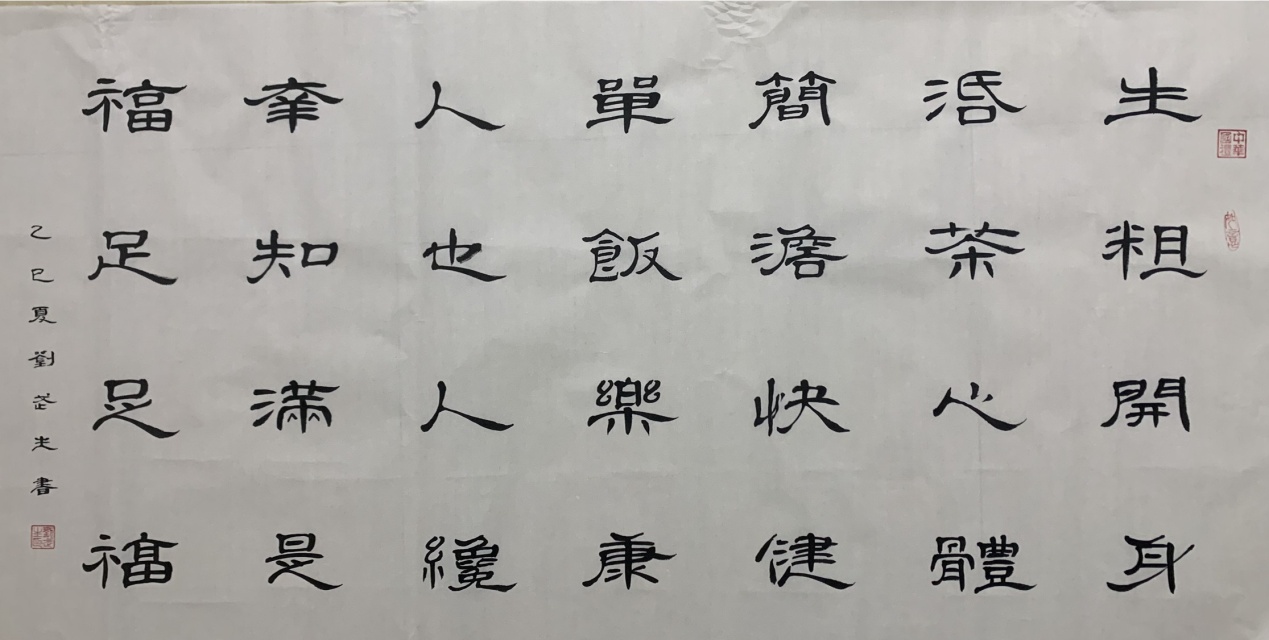 生活簡單人幸福
粗茶澹飯也知足
開心快樂人滿足
身體健康纔是福
乙巳夏劉生書
如意